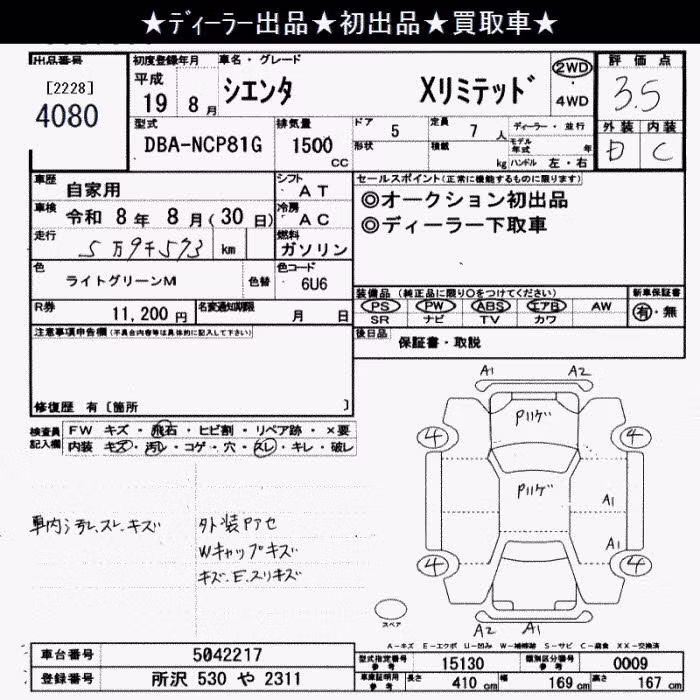 ★ディーラー出品★初出品★買取車★
出品番号
[2228]
4080
初度登録年月
平成
19 8月
車名・グレード
シエンタ Xリミテッド
2WD
・
4WD
評価点
3.5
外装 内装
D C
型式
DBA-NCP81G
排気量
1500
CC
ドア 5
形状
定員 7 人
積載 kg
ディーラー・並行
モデル年式 年
ハンドル 左・右
車歴
自家用
シフト
AT
車検
令和 8年 8月(30日)
冷房
AC
走行
5万9千573 km
燃料
ガソリン
色
ライトグリーンM
色替
色コード
6U6
R券
11,200円
名変通知期限
月 日
セールスポイント(正常に機能するものに限ります)
◎オークション初出品
◎ディーラー下取車
装備品(純正品に限り○をつけてください)
PS PW ABS エアB AW
SR ナビ TV カワ
新車保証書
有・無
後日品
保証書・取説
注意事項申告欄(不具合内容等は具体的に記入して下さい)
修復歴 有〔箇所 〕
検査員記入欄
FW キズ・飛石・ヒビ割・リペア跡・×要
内装 キズ・汚レ・コゲ・穴・スレ・キレ・破レ
車内汚レ、スレ、キズ
外装Pアセ
Wキャップキズ
キズ、E、スリキズ
A1 A2
Pハゲ
4 4
Pハゲ
A1
A1
4 4
スペア
A2 A1
A-キズ E-エクボ U-凹み W-補修跡 S-サビ C-腐食 XX-交換済
車台番号
5042217
登録番号
所沢 530 や 2311
型式指定番号
参考
15130
類別区分番号
参考
0009
車庫証明用
参考
長さ 410 cm 幅 169 cm 高さ 167 cm